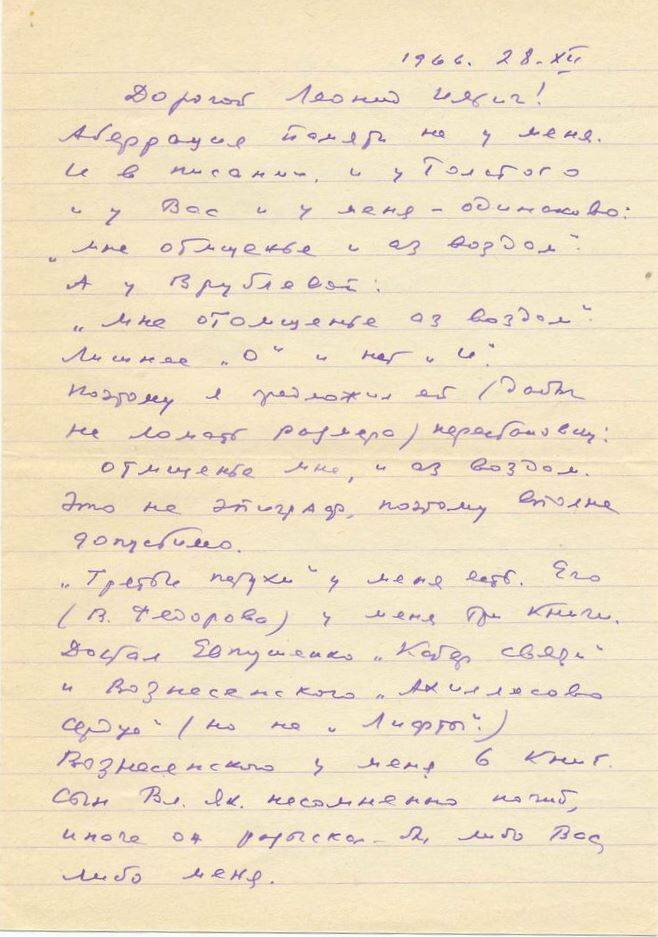 1966. 28.XII
Дорогой Леонид Ильич!
Аберрация памяти не у меня.
И в писании, и у Толстого
и у Вас и у меня – одинаково:
„мне отмщенье и аз воздам“.
А у Врублевой:
„Мне отомщенье аз воздам“.
Лишнее „О“ и нет „И“.
Поэтому я предложил ей (дабы
не ломать размера) перестановку:
отмщенье мне, и аз воздам.
Это не эпиграф, поэтому вполне
допустимо.
„Третьи петухи“ у меня есть. Его
(В. Федорова) у меня три книги.
Достал Евтушенко „Катер связи“
и Вознесенского „Ахиллесово
сердце“ (но не „Лифты“.)
Вознесенского у меня 6 книг.
Сын Вл. Як. несомненно погиб,
иначе он разыскал бы либо Вас,
либо меня.